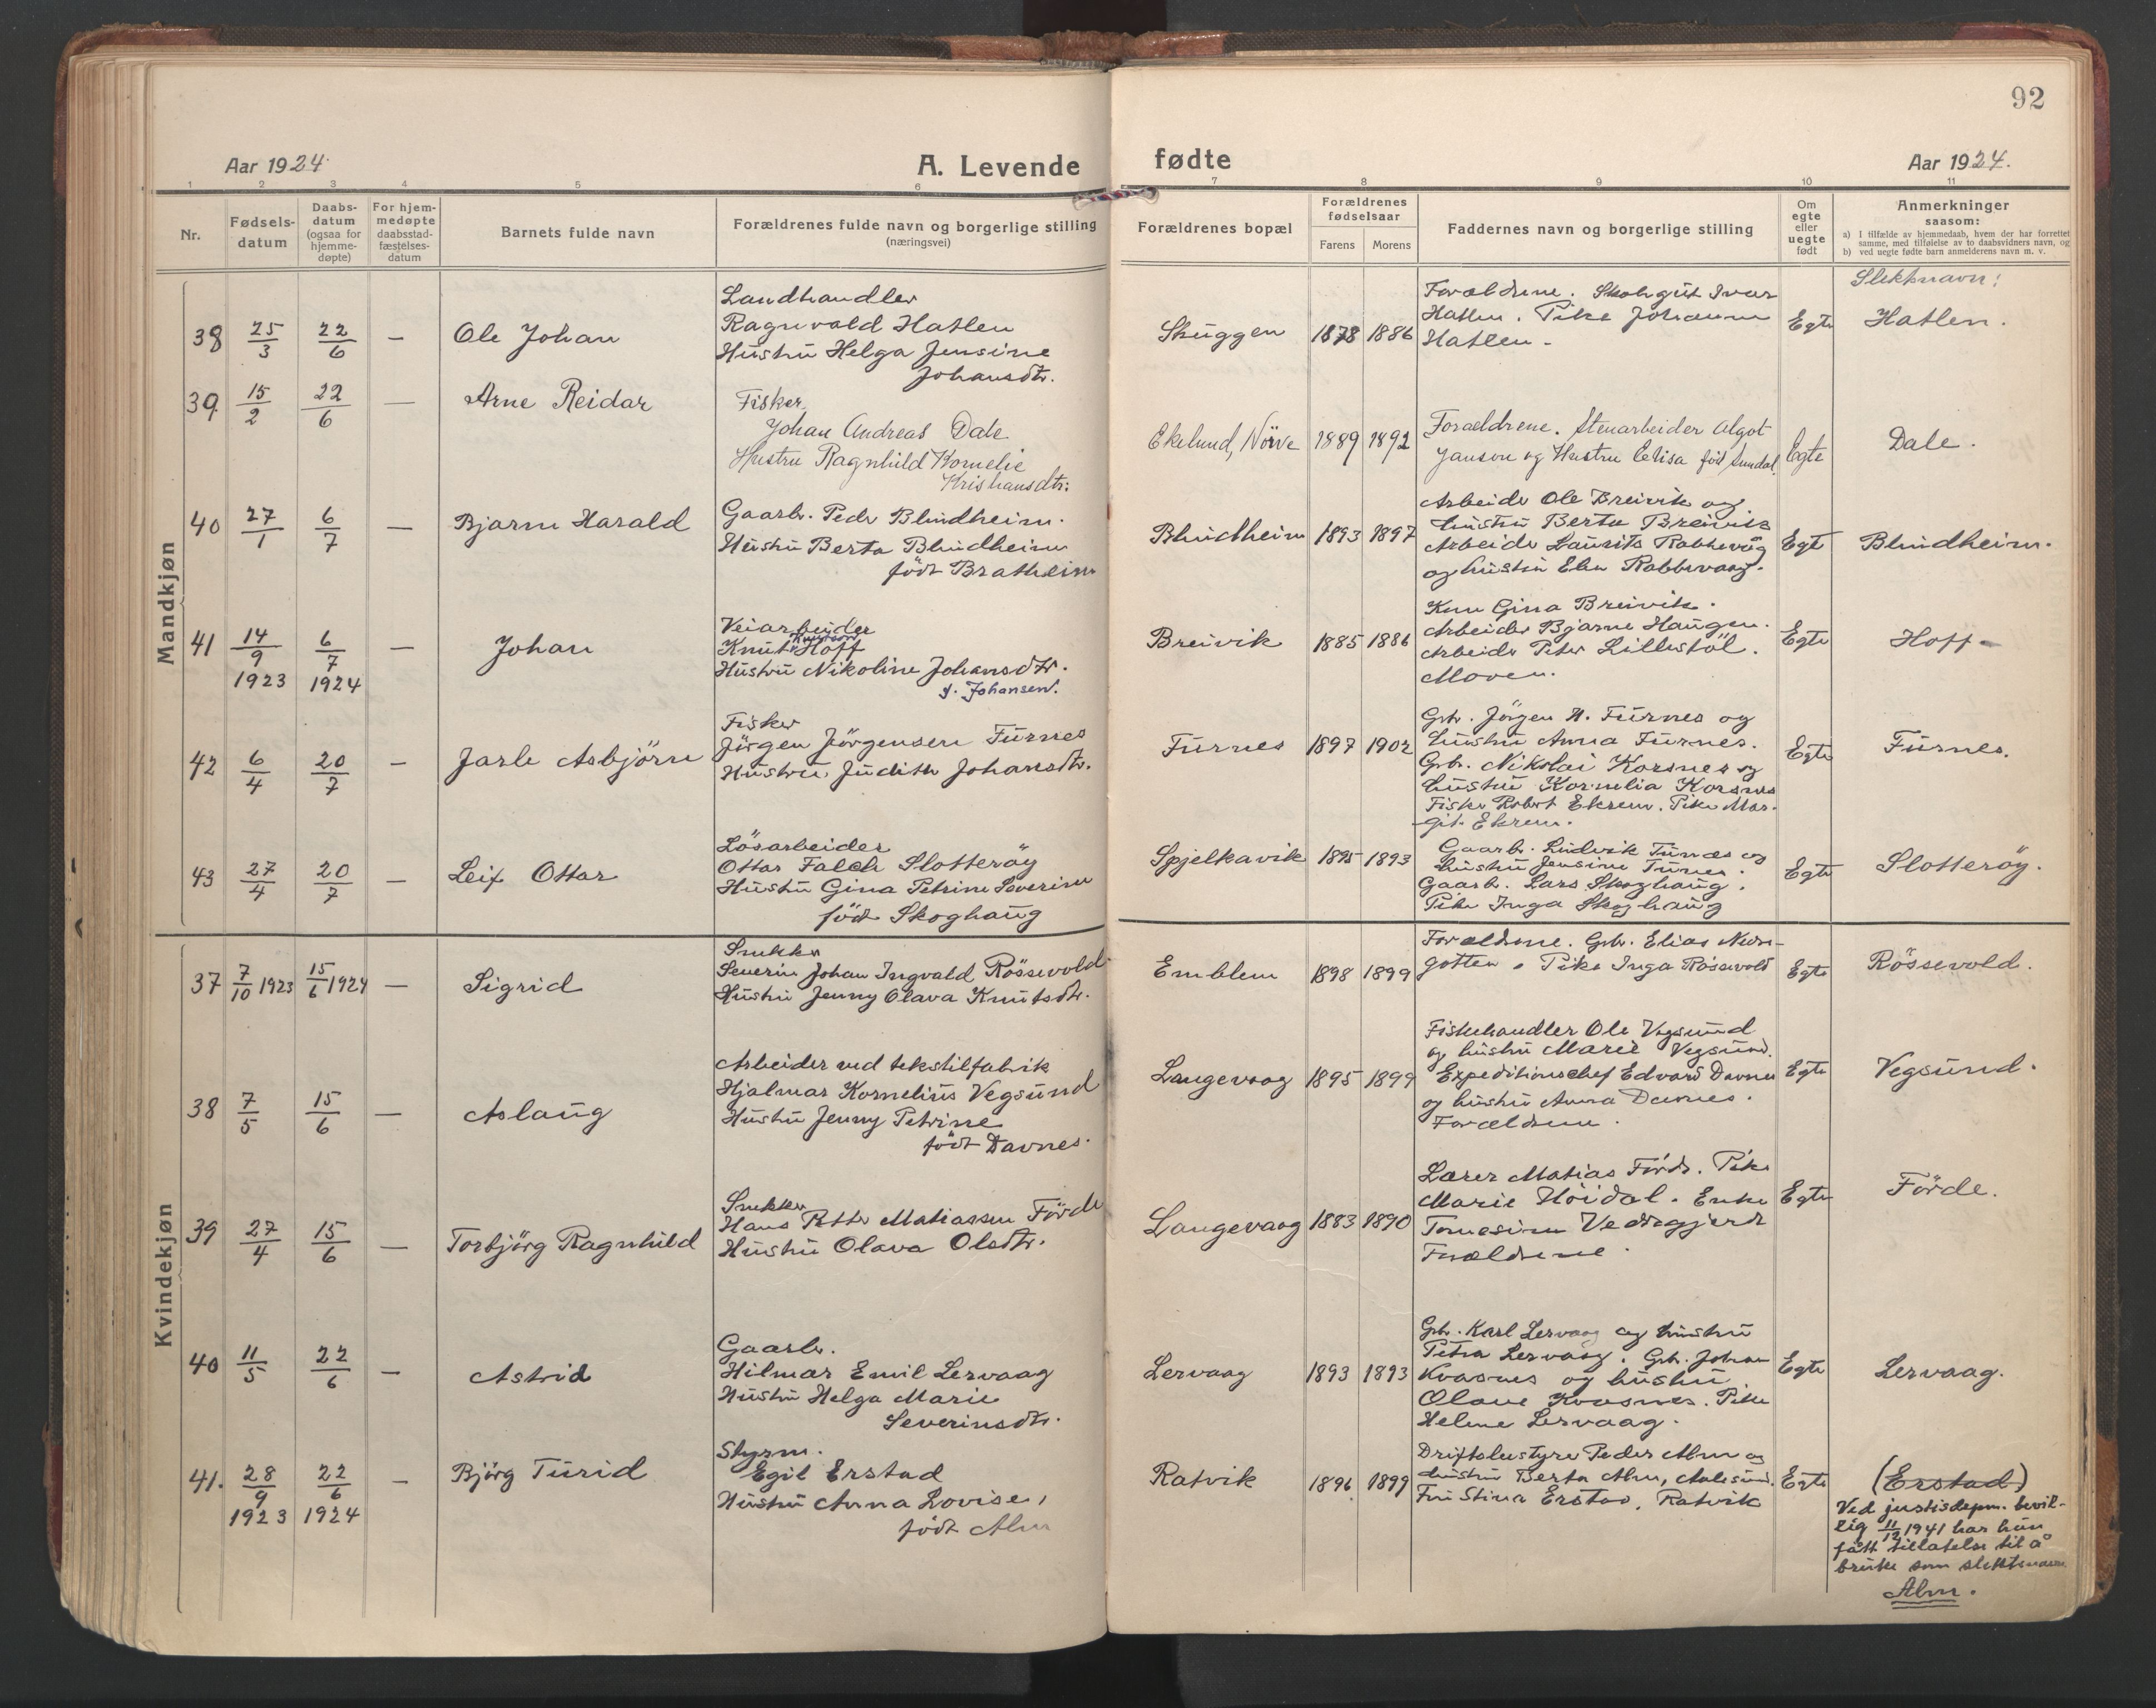 92
Aar 1924.
A. Levende
fødte
Aar 1924.
1 2 3 4 5 6 7 8 9 10 11
Nr.
Fødsels-
datum
Daabs-
datum
(ogsaa for
hjemme-
døpte)
For hjem-
medøpte
daabsstad-
fæstelses-
datum
Barnets fulde navn
Forældrenes fulde navn og borgerlige stilling
(næringsvei)
Forældrenes bopæl
Forældrenes
fødselsaar
Farens Morens
Faddernes navn og borgerlige stilling
Om
egte
eller
uegte
født
Anmerkninger
saasom:
a) I tilfælde av hjemmedaab, hvem der har forrettet
samme, med tilføielse av to daabsvidners navn, og
b) ved uegte fødte barn anmelderens navn m. v.
Mandkjøn
Slektnavn:
38 25/3 22/6 — Ole Johan
Landhandler
Ragnvald Hatlen
Hustru Helga Jensine
Johansdtr.
Skuggen 1878 1886
Forældrene. Skolegut Ivar
Hatlen. Pike Johanne
Hatlen.
Egte Hatlen.
39 15/2 22/6 — Arne Reidar
Fisker
Johan Andreas Dale
Hustru Ragnhild Kornelie
Kristiansdtr.
Ekelund, Nörve 1889 1892
Forældrene. Stenarbeider Algot
Janson og Hustru Elisa född Sundal.
Egte Dale.
40 27/1 6/7 — Bjarne Harald
Gaarbr. Peder Blindheim.
Hustru Berta Blindheim
född Bratheim
Blindheim 1893 1897
Arbeider Ole Breivik og
hustru Berta Breivik
Arbeider Laurits Rabbevåg
og hustru Elen Rabbevaag.
Egte Blindheim.
41 14/9 1923 6/7 1924 — Johan
Veiarbeider
Knut Knutson Hoff
Hustru Nikoline Johansdtr.
f. Johansen.
Breivik 1885 1886
Kone Gina Breivik.
Arbeider Bjarne Haugen.
Arbeider Peter Lillestöl.
Moren.
Egte Hoff
42 6/4 20/7 — Jarle Asbjörn
Fisker
Jörgen Jörgensen Furnes
Hustru Judith Johansdtr.
Furnes 1897 1902
Grbr. Jörgen N. Furnes og
hustru Anna Furnes.
Grbr. Nikolai Korsnes og
hustru Kornelia Korsnes
Fisker Robert Ekrem. Pike Mar-
git Ekrem.
Egte Furnes.
43 27/4 20/7 — Leif Ottar
Lösarbeider
Ottar Falch Slotteröy
Hustru Gina Petrine Severine
född Skoghaug
Spjelkavik 1895 1893
Gaarbr. Ludvik Tunes og
hustru Jensine Tunes.
Gaarbr. Lars Skoghaug.
Pike Inga Skoghaug
Egte Slotteröy.
Kvindekjøn
37 7/10 1923 15/6 1924 — Sigrid
Snekker
Severin Johan Ingvald Rössevold
Hustru Jenny Olava Knutsdtr.
Emblem 1898 1899
Forældrene. Grbr. Elias Nedre-
gotten. Pike Inga Rössevold
Egte Rössevold.
38 7/5 15/6 — Aslaug
Arbeider ved tekstilfabrik
Hjalmar Kornelius Vegsund
Hustru Jenny Petrine
född Davnes.
Langevaag 1895 1899
Fiskehandler Ole Vegsund
og hustru Marie Vegsund.
Expeditionschef Edvard Davnes
og hustru Anna Davnes.
Forældrene.
Egte Vegsund.
39 27/4 15/6 — Torbjörg Ragnhild
Snekker
Hans Petter Matiassen Förde
Hustru Olava Olsdtr.
Langevaag 1883 1890
Lærer Matias Förde. Pike
Marie Höidal. Enke
Tomesine Veddegjerde
Forældrene.
Egte Förde.
40 11/5 22/6 — Astrid
Gaarbr.
Hilmar Emil Lervaag
Hustru Helga Marie
Severinsdtr.
Lervaag 1893 1893
Grbr. Karl Lervaag og hustru
Petra Lervaag. Grbr. Johan
Kvasnes og hustru
Olave Kvasnes. Pike
Helene Lervaag.
Egte Lervaag.
41. 28/9 1923 22/6 1924 — Björg Turid
Styrm.
Egil Erstad
Hustru Anna Lovise,
född Alm
Ratvik 1896 1899
Driftsbestyrer Peder Alm og
hustru Berta Alm, Aalesund.
Fru Stina Erstad, Ratvik
Egte (Erstad)
Ved justisdepm. bevil-
lig 11/12 1941 har hun
fått tillatelse til å
bruke som slektsnavn
Alm.